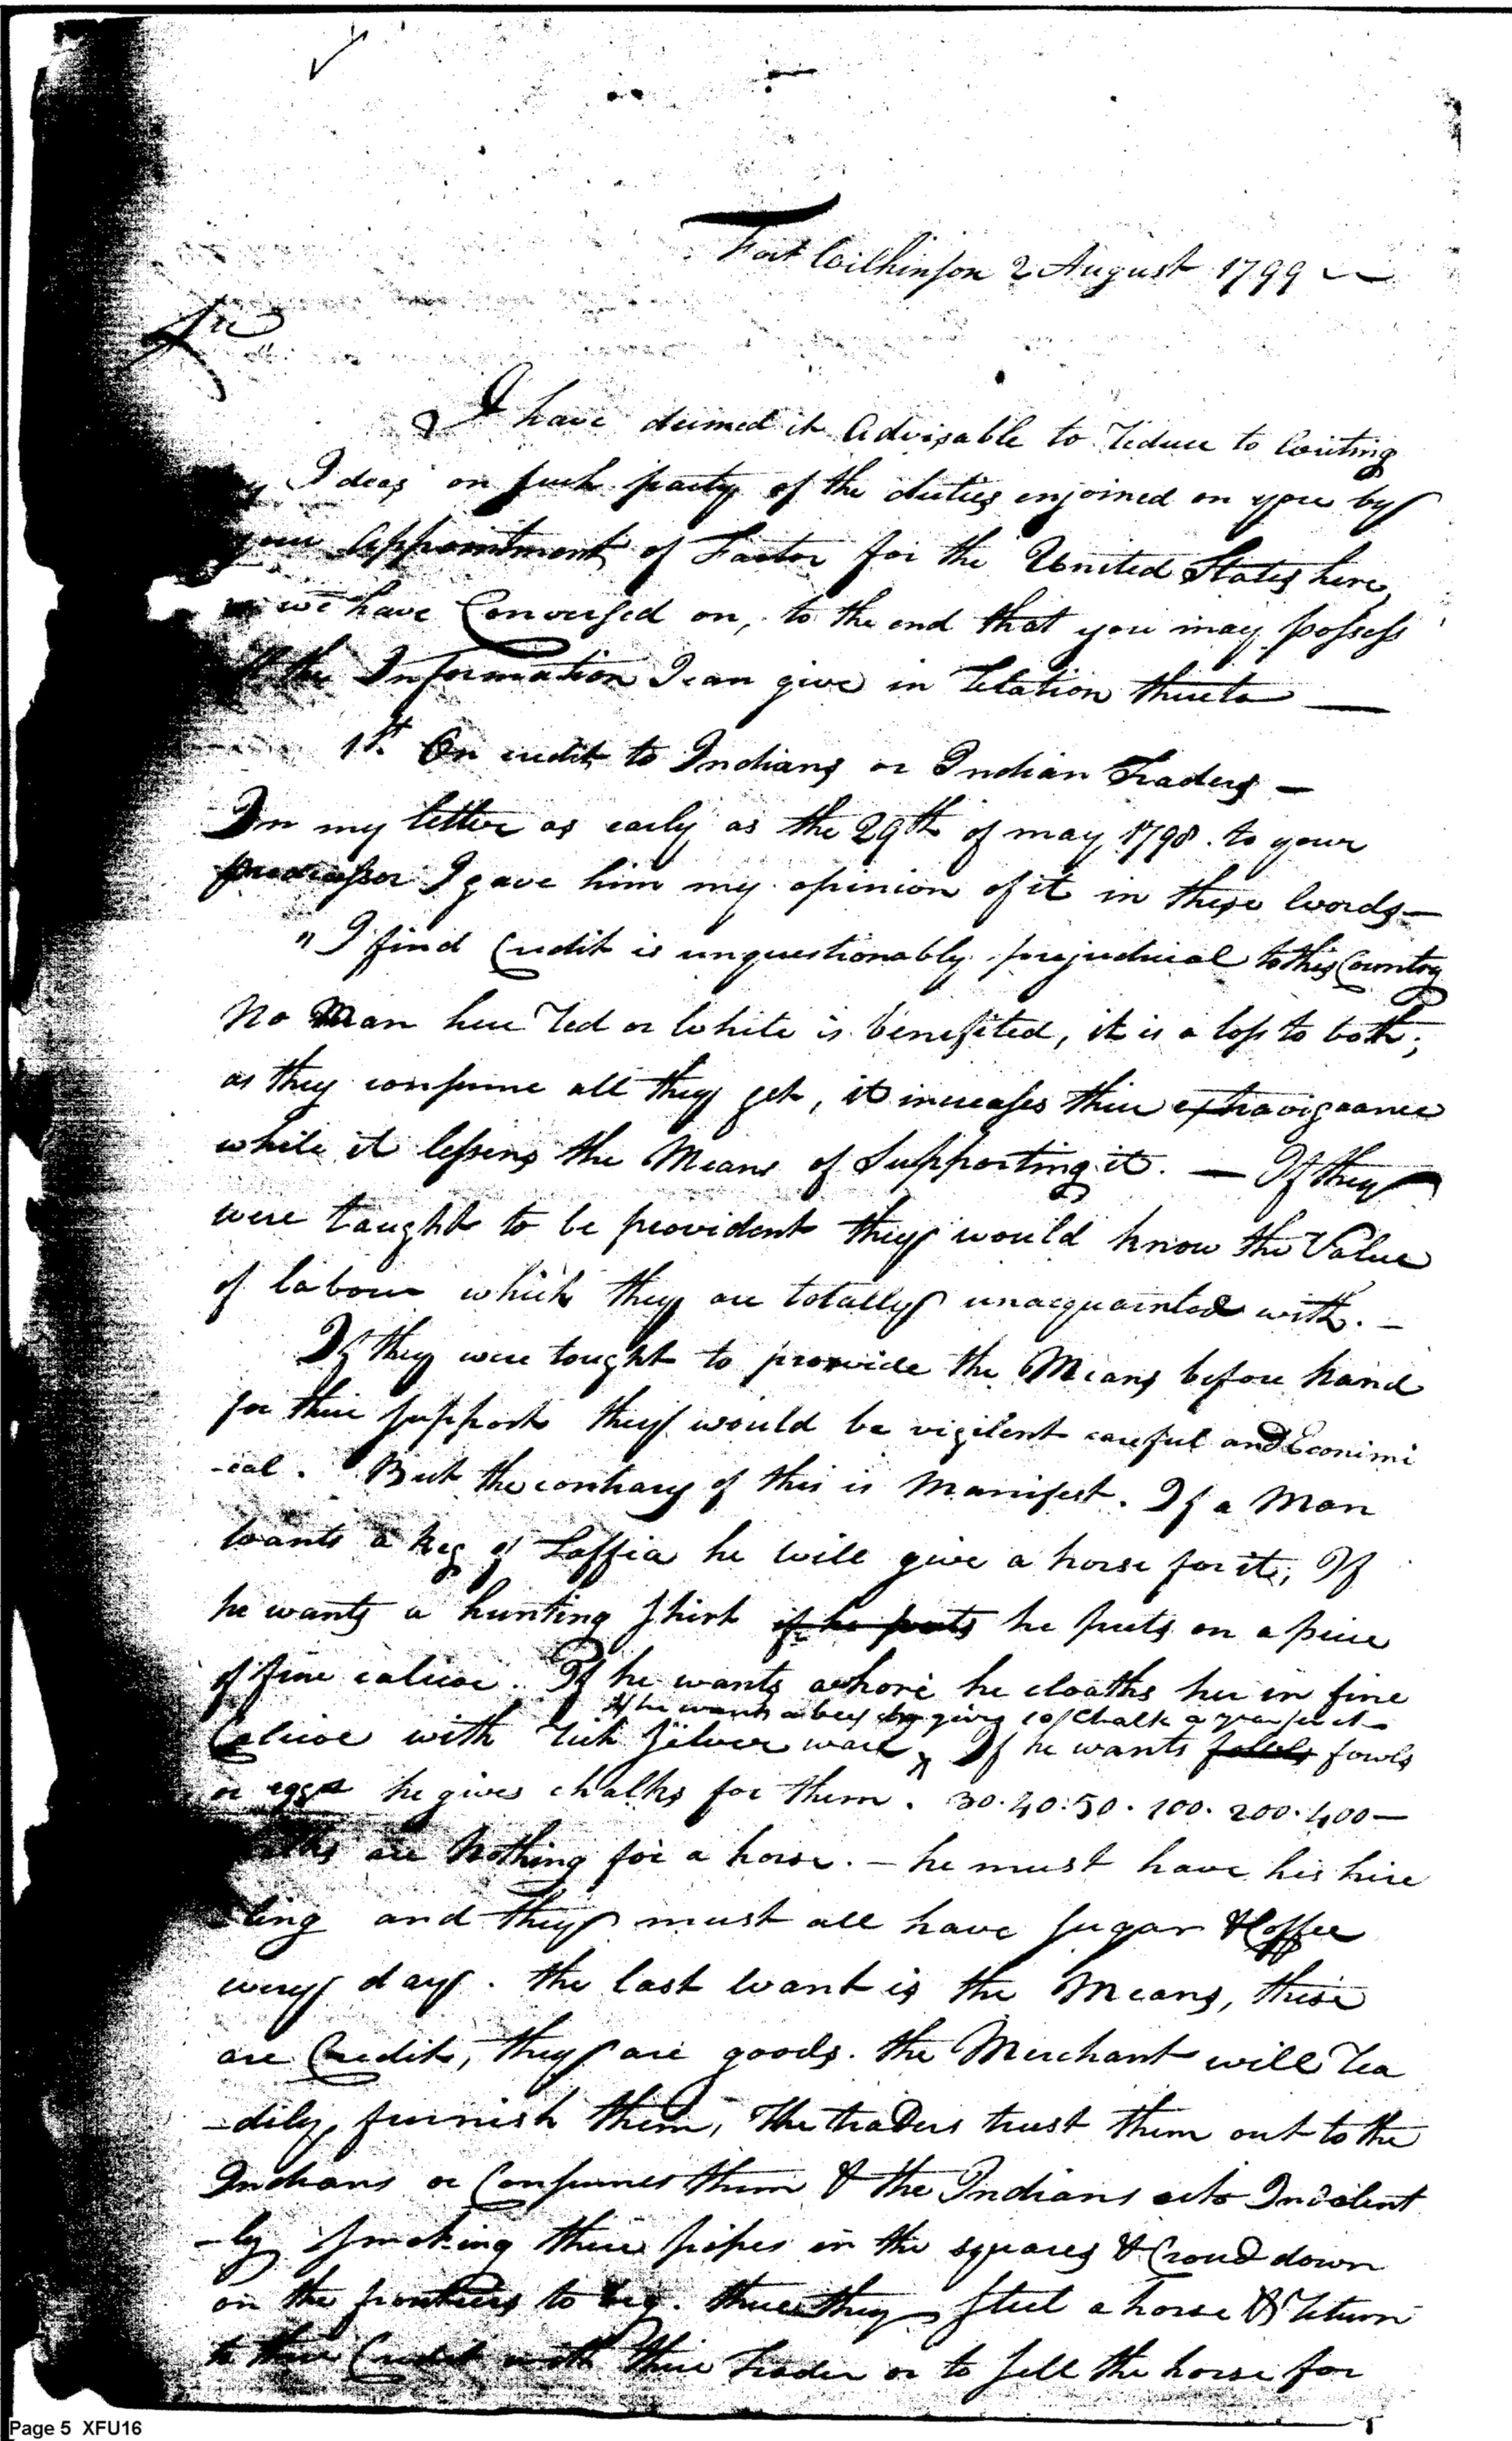 Fort Wilkinson 2 August 1799
Sir
I have deemed it advisable to reduce to writing
my Ideas on such parts of the duties enjoined on you by
your appointment of Factor for the United States here,
as we have Conversed on, to the end that you may possess
all the Information I can give in relation thereto
1st. On credit to Indians or Indian Traders —
In my letter as early as the 29th of may 1798. to your
predecessor I gave him my opinion of it in these words —
"I find Credit is unquestionably prejudicial to this Country
No Man here red or white is benefited, it is a loss to both;
as they consume all they get, it increases their extravigaance
while it lessens the Means of Supporting it. — If they
were taught to be provident they would know the Value
of labour which they are totally unacquainted with. —
If they were tought to provide the Means before hand
for their support they would be vigilent careful and Econimi
-cal. But the contrary of this is Manifest. If a Man
wants a keg of Taffia he will give a horse for it; If
he wants a hunting shirt if he puts he puts on a piece
of fine calicoe. If he wants a whore he cloaths her in fine
If he wants a beef he gives 10 / Chalk a year for it
Calicoe with rich silver ware, If he wants fowls
or eggs he gives chalks for them. 30. 40. 50. 100. 200. 400 —
chalks are Nothing for a horse. — he must have his hire
-ling and they must all have sugar & Coffee
every day. the last want is the Means, these
are Credit, they are goods. the Merchant will rea
-dily furnish them, the traders trust them out to the
Indians or Consumes them & the Indians sits Indolent
-ly smoking their pipes in the squares & Croud down
on the frontiers to beg. there they steel a horse & return
to their Credit with their trader or to sell the horse for
Page 5 XFU16